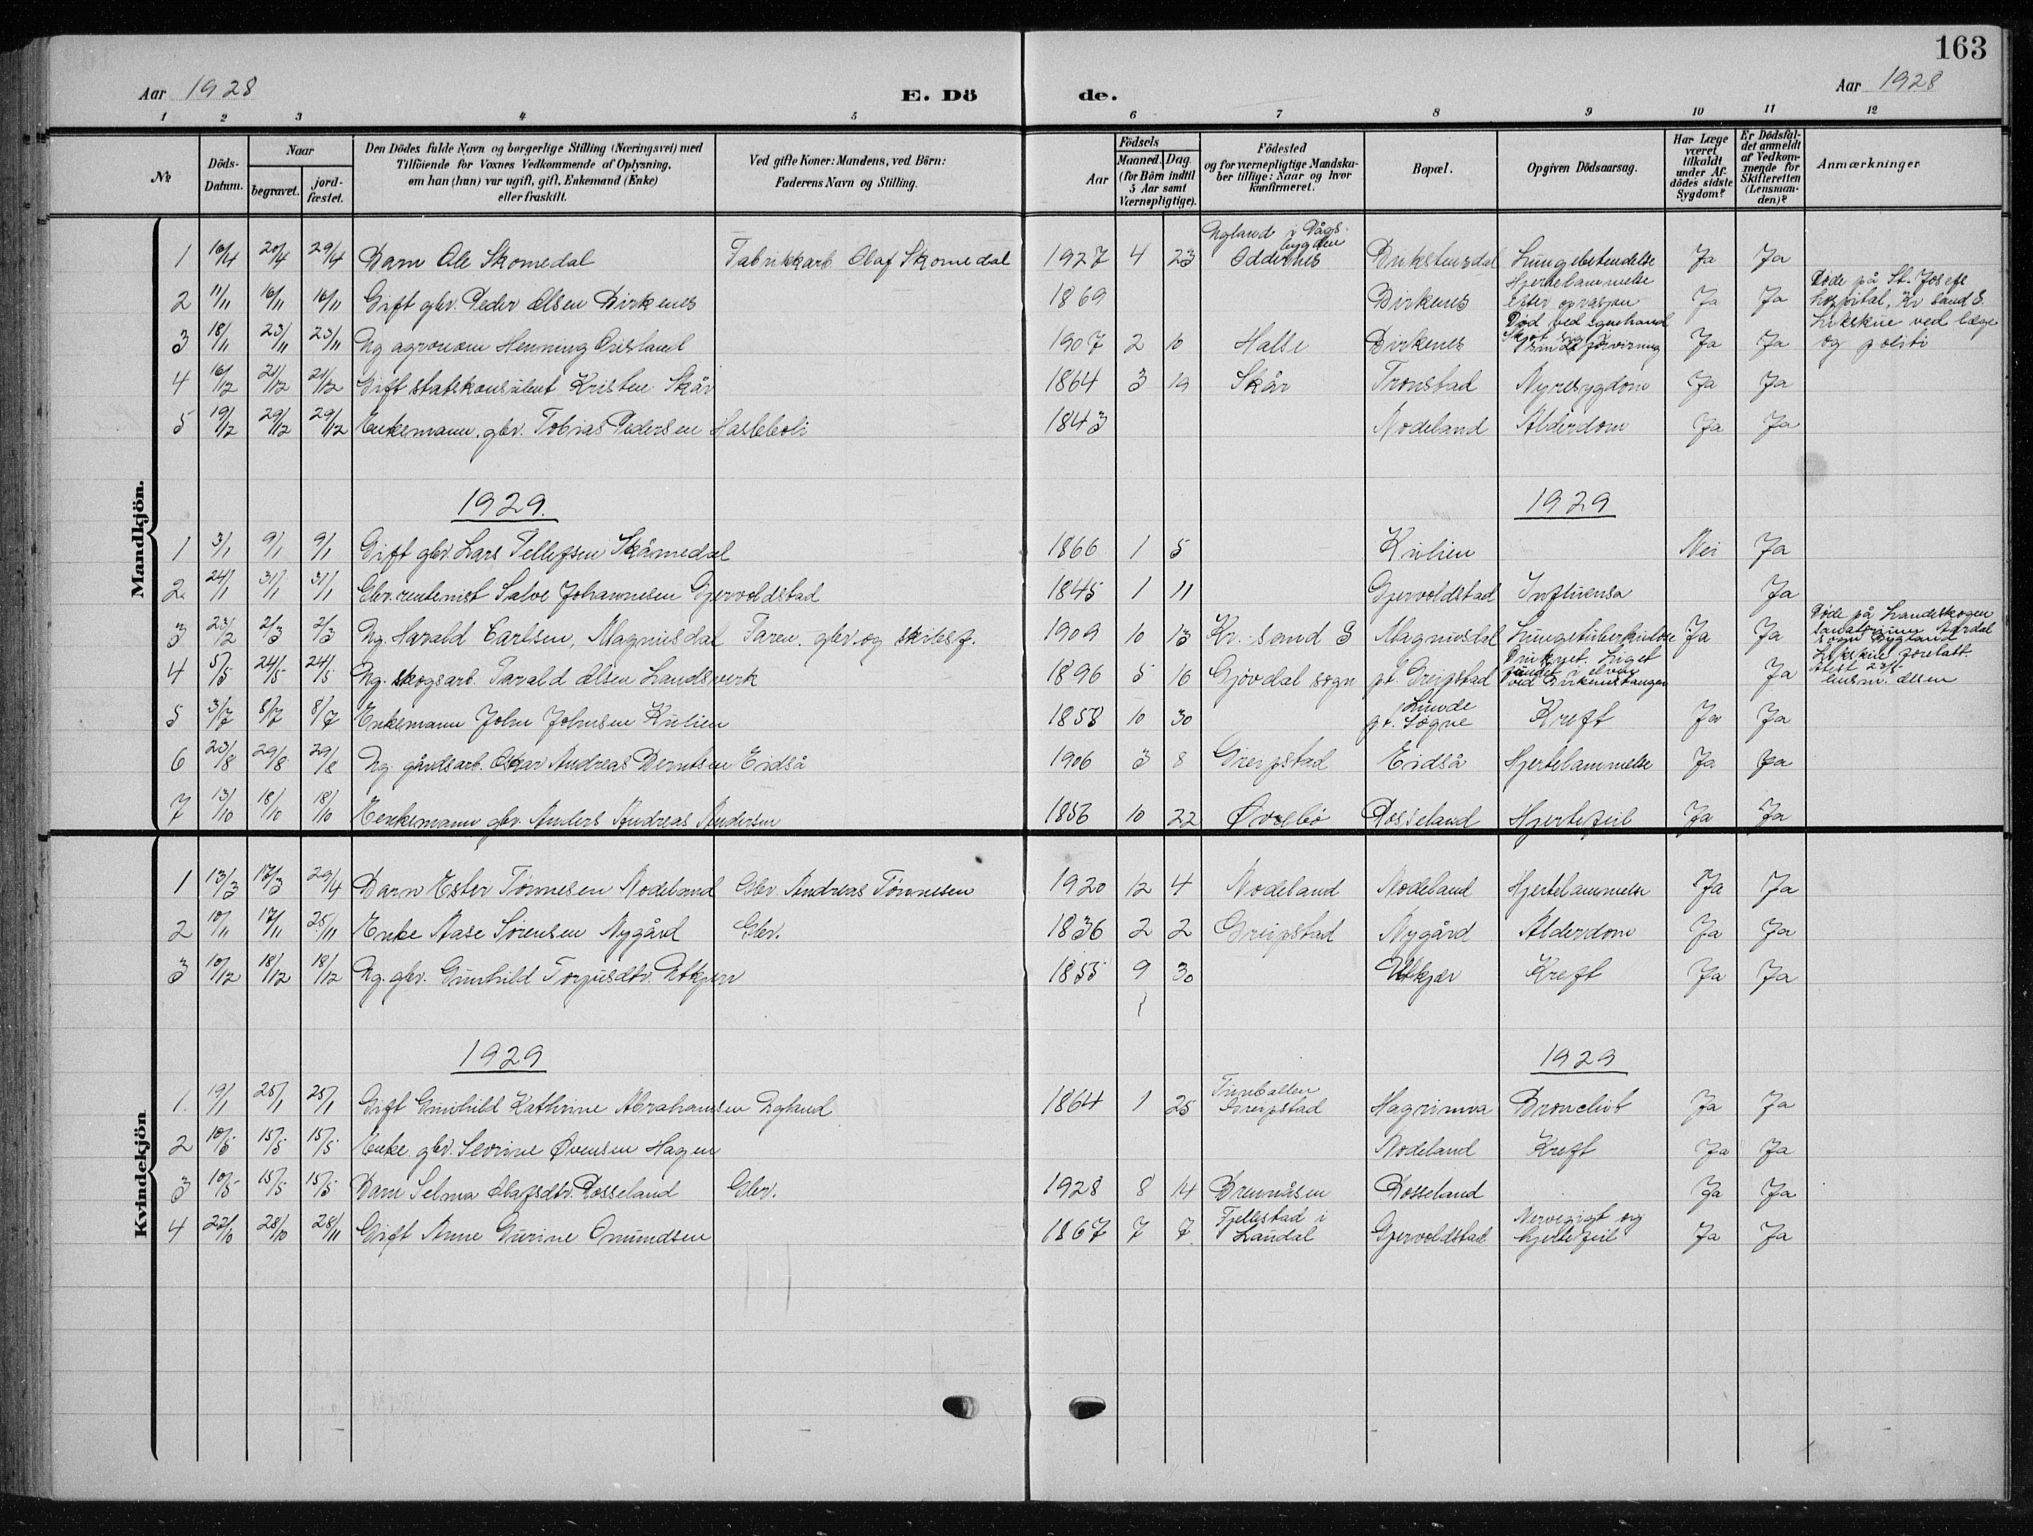 163
Aar 1928 E. Dö de. Aar 1928
1 2 3 4 5 6 7 8 9 10 11 12
№ Döds-Datum. Naar begravet. jordfæstet. Den Dödes fulde Navn og borgerlige Stilling (Næringsvei) med Tilföiende for Voxnes Vedkommende af Oplysning, om han (hun) var ugift, gift, Enkemand (Enke) eller fraskilt. Ved gifte Koner: Mandens, ved Börn: Faderens Navn og Stilling. Födsels Aar Maaned. Dag. (for Börn indtil 5 Aar samt Værnepligtige). Födested og for værnepligtige Mandskaber tillige: Naar og hvor konfirmeret. Bopæl. Opgiven Dödsaarsag. Har Læge været tilkaldt under Afdödes sidste Sygdom? Er Dödsfaldet anmeldt af Vedkommende for Skifteretten (Lensmanden)? Anmærkninger
Mandkjön.
1 16/4 20/4 29/4 Barn Ole Skomedal Fabrikkarb. Olaf Skomedal 1927 4 23 Ugland i Vågsbygden Oddernes Lungebetendelse Ja Ja
2 11/11 16/11 16/11 Gift gbr. Peder Olsen Birkenes 1869 Birkenes Hjertelammelse efter Ja Ja Døde på St. Josefs hospital, Kr sand S.
3 18/11 23/11 23/11 Ug agronom Henning 1907 2 10 Halse Birkenes Død ved egenhånd Ja Ja Likskue ved læge og politi
4 16/12 21/12 21/12 Gift statskonsulent Kristen Skår 1864 3 19 Skår Tronstad Nyresygdom Ja Ja
5 19/12 29/12 29/12 Enkemann, gbr. Tobias Pedersen 1843 Nodeland Alderdom Ja Ja
1929. 1929
1 3/1 9/1 9/1 Gift gbr. Lars Tellefsen Skåmedal 1866 1 5 Kulien Nei Ja
2. 24/1 31/1 31/1 Salve Johannesen Gjervoldstad 1845 1 11 Gjervoldstad Influensa Ja
3 23/2 2/3 2/3 Ug. Harald Carlsen, Magnusdal Faren. gbr. og 1909 10 13 Kr.-sand S Magnusdal Lungetuberkulose Ja Ja Døde på Landeskogen Bygland
4 5/5 24/5 24/5 Ug. skogsarb. Tarald Olsen Landsverk 1896 5 16 Gjøvdal sogn pt. Greipstad Druknet. Liget fundet i elven Ja Likskue foretatt lensm. Olsen
5 3/7 8/7 8/7 Enkemann John Johnsen Kulien 1858 10 30 pt. Lunde Søgne Kreft Ja Ja
6 23/8 29/8 29/8 Ug. gårdsarb. Oskar Andreas Berntsen Eidså 1906 3 8 Greipstad Eidså Hjertelammelse Ja Ja
7 13/10 18/10 18/10 Enkemann gbr. Anders Andreas Andersen 1856 10 22 Øvsebø Rosseland Hjertefeil Ja Ja
Kvindekjön
1 13/3 17/3 29/4 Barn Ester Tønnesen Nodeland Gbr. Andreas Tønnesen 1920 12 4 Nodeland Nodeland Hjertelammelse Ja Ja
2 10/11 17/11 25/11 Enke Aase Sørensen Nygård Gbr. 1836 2 2 Greipstad Nygård Alderdom Ja Ja
3 10/12 18/12 18/12 Ug. gbr. Gunhild Torjusdtr. Utkjær 1855 9 30 Utkjær Kreft Ja Ja
1929 1929
1. 19/1 25/1 25/1 Gift Gunhild Kathrine Abrahamsen Ugland 1864 1 25 Greipstad Bronchit Ja Ja
2 10/5 15/5 15/5 Enke gbr. Severine Øvensen Hagen Nodeland Kreft Ja Ja
3 10/5 15/5 15/5 Barn Selma Olafsdtr. Rosseland Gbr. 1928 8 14 Brennåsen Rosseland Ja Ja
4 22/10 28/10 28/11 Gift Anne Gurine Omundsen 1867 7 7. Fjellestad i Laudal Gjervoldstad Nervegigt og hjertefeil Ja Ja